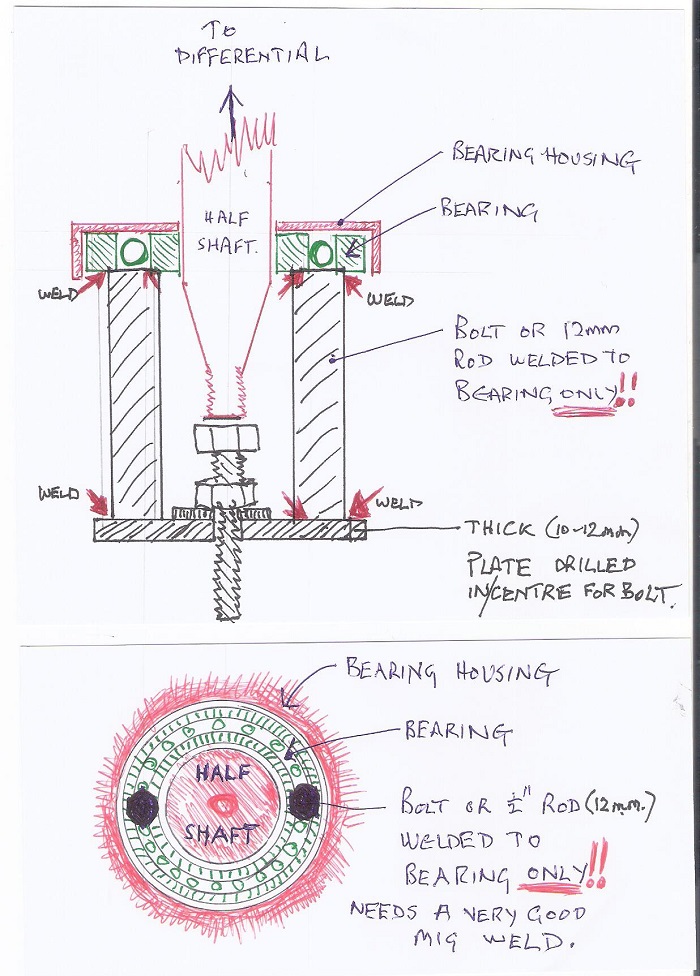 TO
DIFFERENTIAL
BEARING HOUSING
BEARING
HALF
SHAFT.
WELD
WELD
BOLT OR 12mm
ROD WELDED TO
BEARING ONLY!!
WELD
WELD
THICK (10-12mm)
PLATE DRILLED
IN/CENTRE FOR BOLT.
BEARING HOUSING
BEARING
HALF
SHAFT
BOLT OR ½" ROD (12m.m.)
WELDED TO
BEARING ONLY!!
NEEDS A VERY GOOD
MIG WELD.